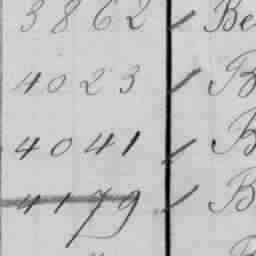 3862 / Be
4023 / B
4041 / B
4179 / B